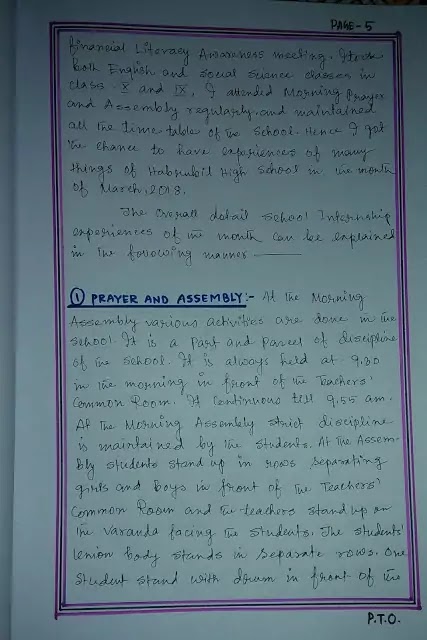 PAGE-5
financial Literacy Awareness meeting. I took
both English and social science classes in
class X and IX, I attended Morning prayer
and Assembly regularly, and maintained
all the time table of the School. Hence I got
the chance to have experiences of many
things of Habrubil High School in the month
of March, 2018.
The overall detail School Internship
experiences of the month can be explained
in the following manner ———
① PRAYER AND ASSEMBLY:- At the Morning
Assembly various activities are done in the
school. It is a part and parcel of discipline
of the School. It is always held at 9.30
in the morning in front of the Teachers'
Common Room. It continuous till 9.55 am.
At the Morning Assembly strict discipline
is maintained by the students. At the Assem-
bly students stand up in rows separating
girls and boys in front of the Teachers'
Common Room and the teachers stand up on
the varanda facing the students. The students'
Union body stands in separate rows. One
student stand with drum in front of the
P.T.O.